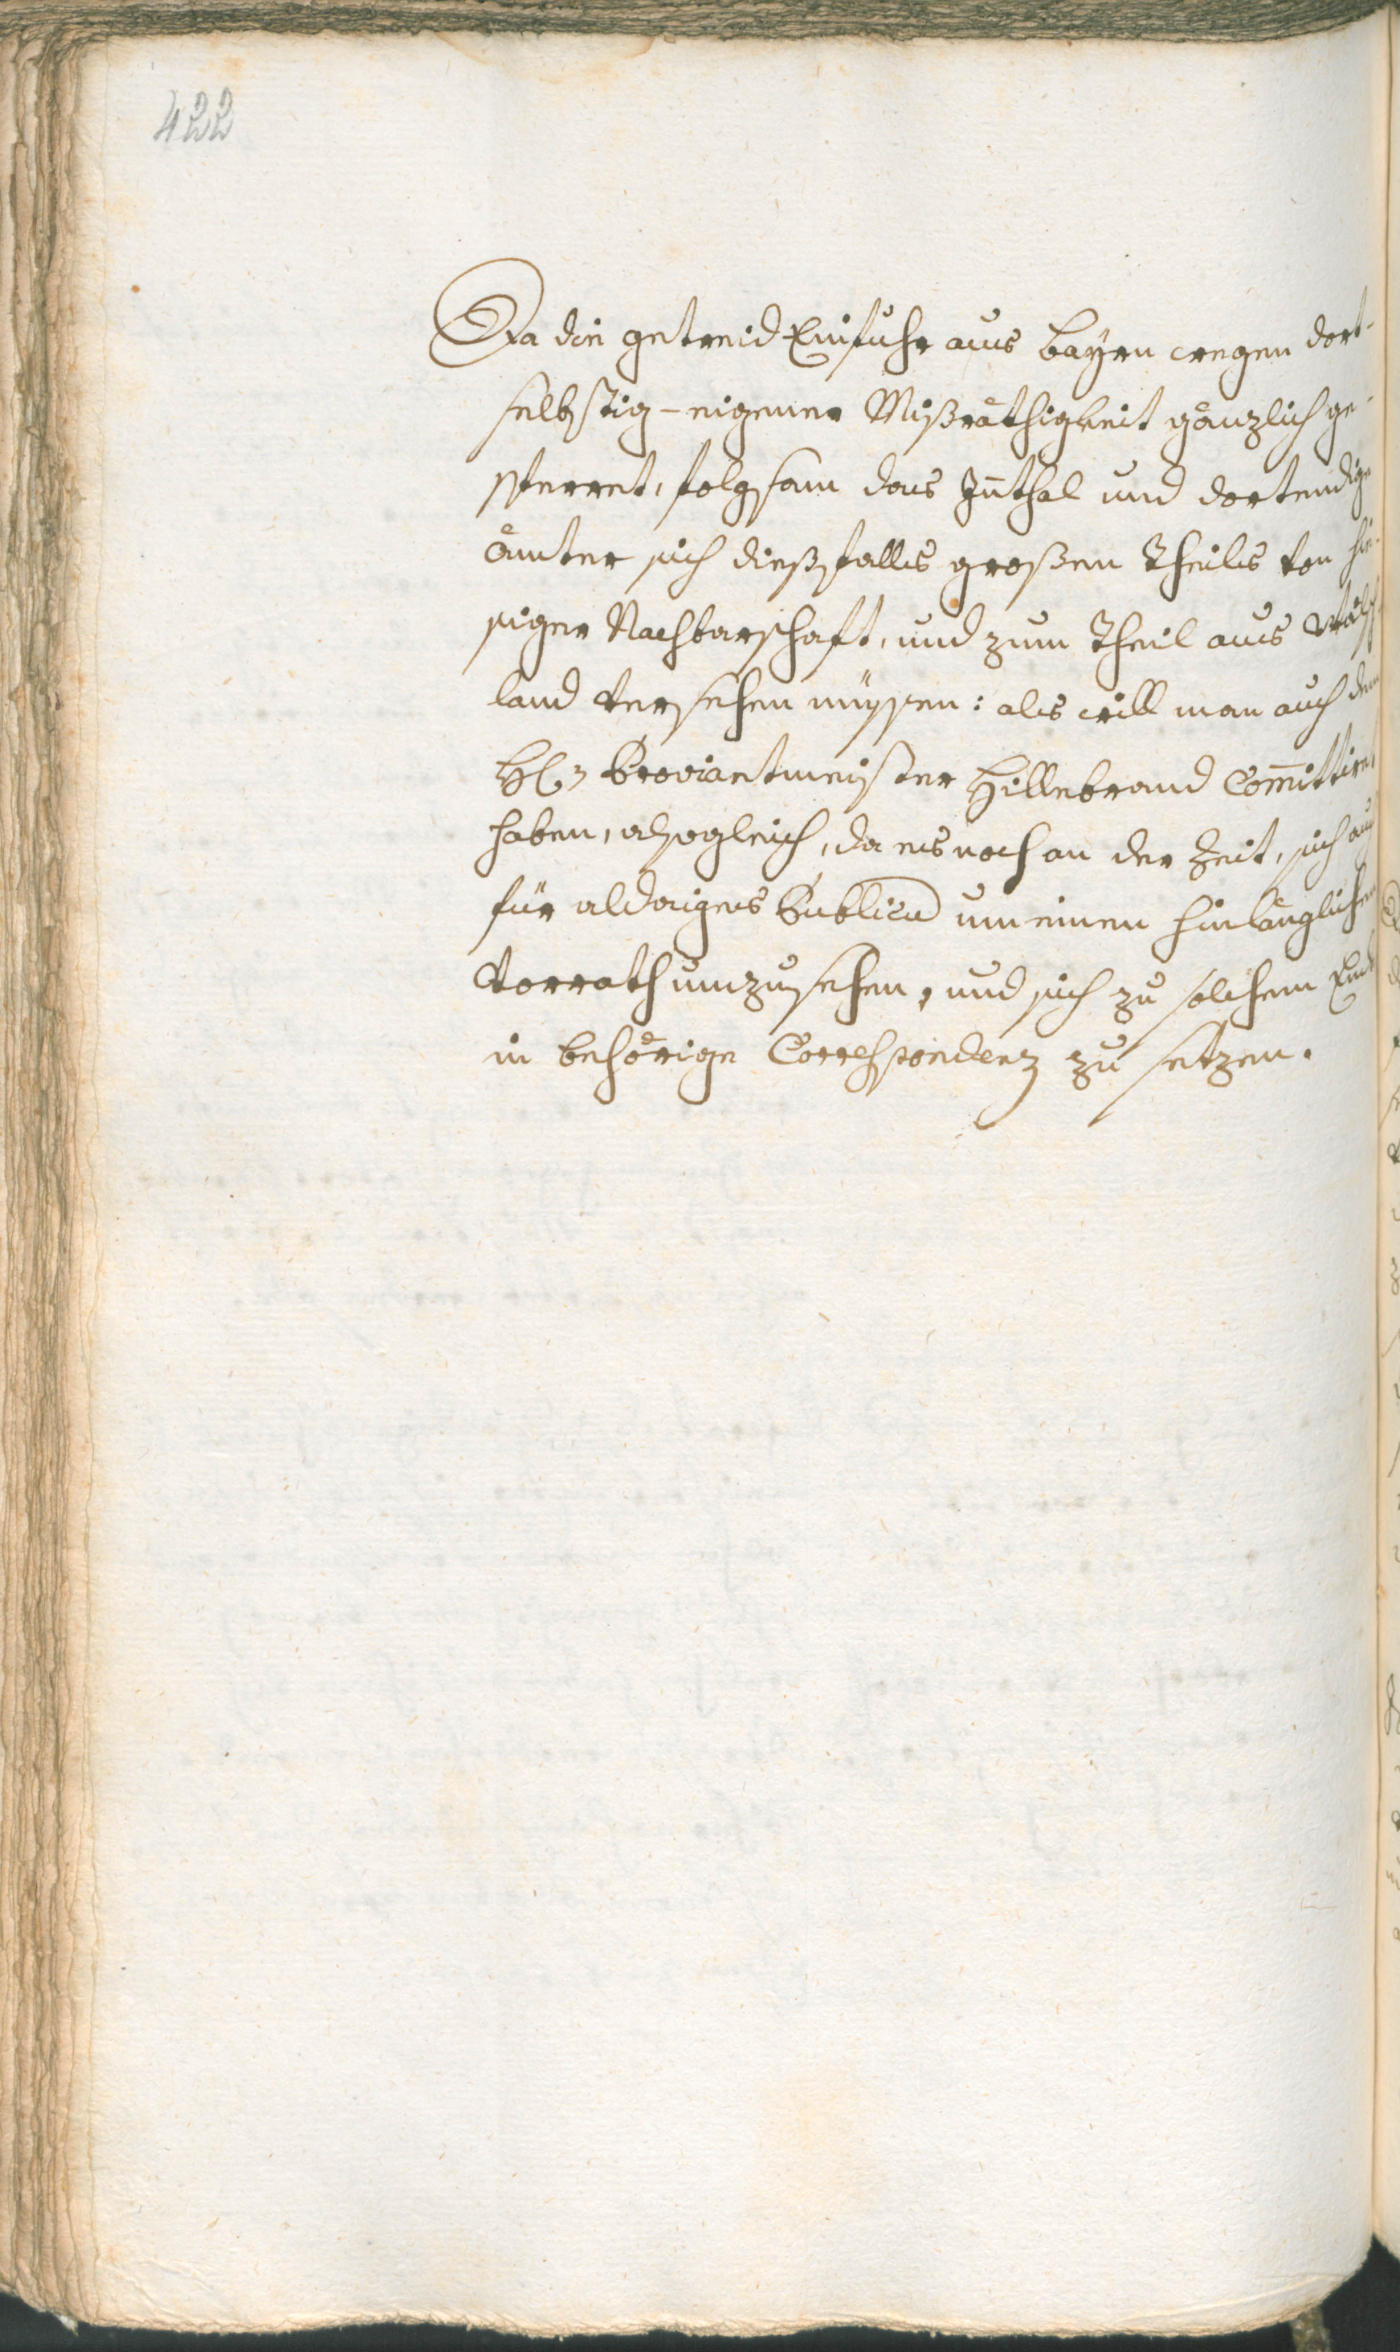 422
Da die getreid Einfuhr aus Bayrn wegen dort-
selbstig-eigener Mißräthigkeit gänzlich ge-
sperret, folgsam das Inthal und dortendige
ämter sich dießfalls großen Theils von hie-
siger Nachbarschaft, und zum Theil aus Wälsch
land versehen müssen: als will man auch dem
H: Proviantmeister Hillebrand Committiret
haben, alsogleich, da es noch an der Zeit, sich auch
für aldaiges Publicum um einen hinlänglichen
Vorrath umzusehen, und sich zu solchem Ende
in behörige Correspondenz zu setzen.